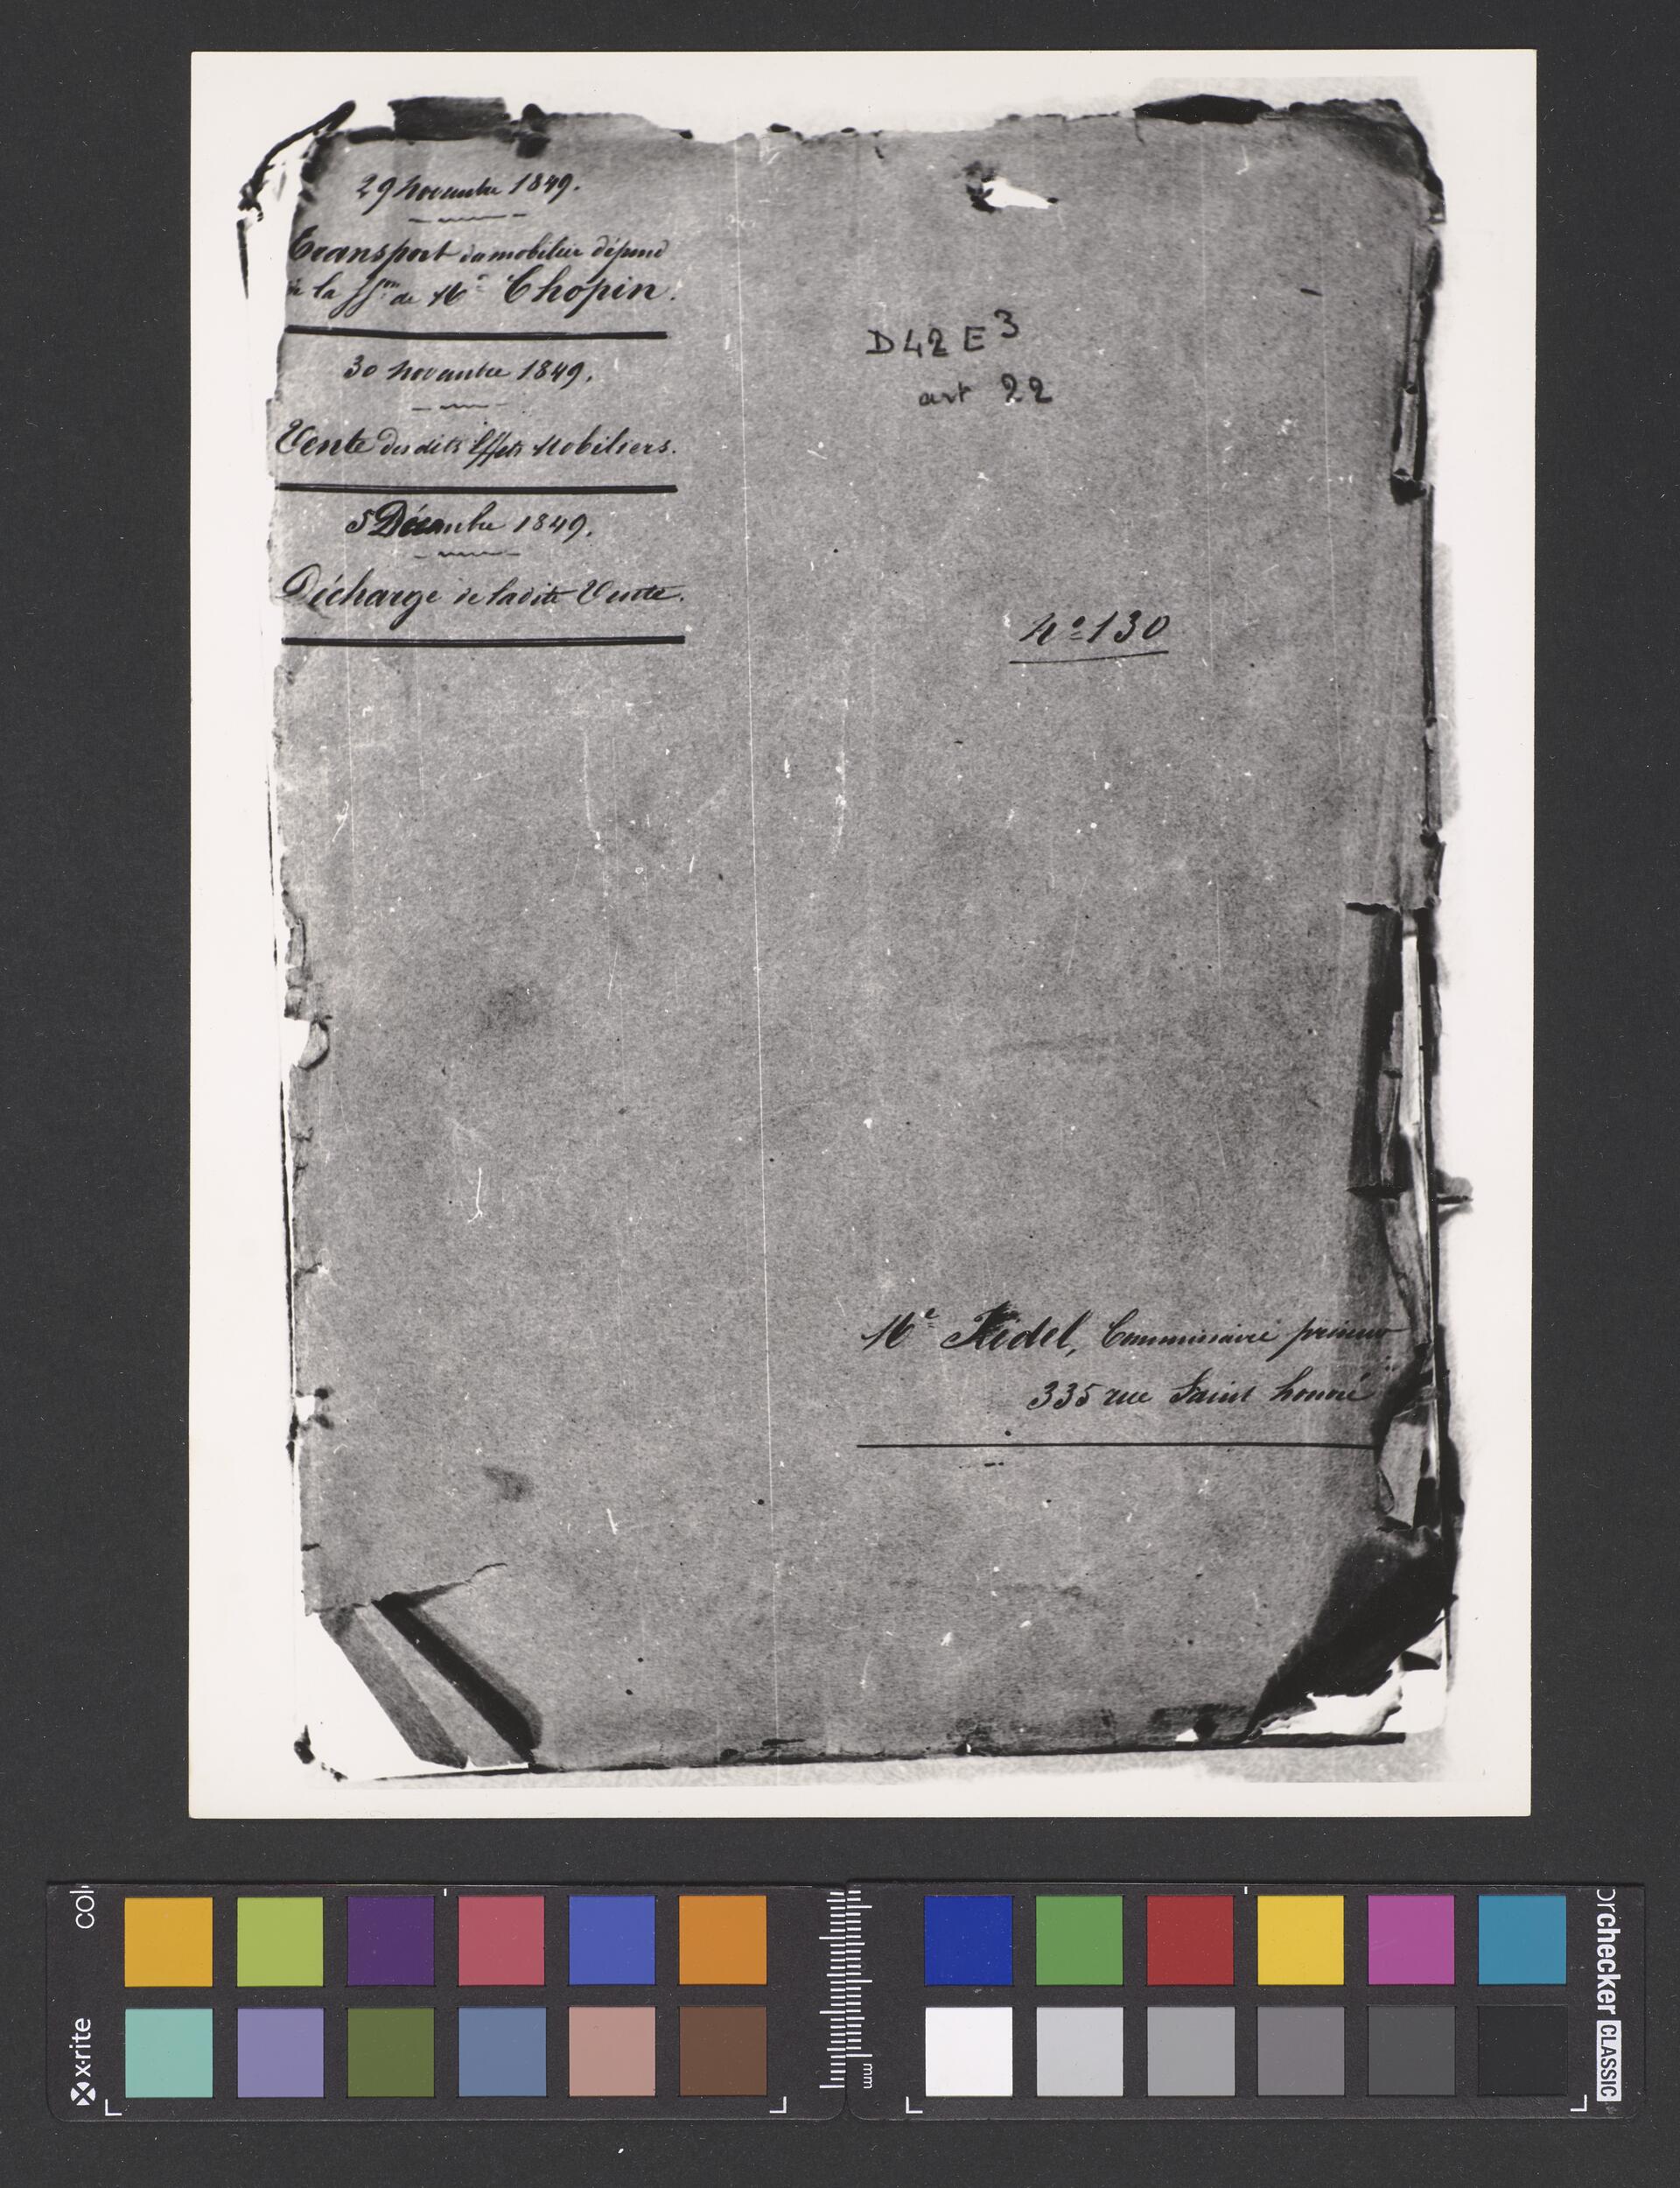 29 Novembre 1849.
Transport du mobilier dépend
de la sson de Mr Chopin.
30 Novembre 1849.
Vente des dits Effets Mobiliers.
5 Décembre 1849.
Décharge de ladite Vente.
D42E3
art 22
No 130
Me Ridel, Commissaire priseur
335 rue Saint honoré
col
x-rite
mm
orchecker CLASSIC